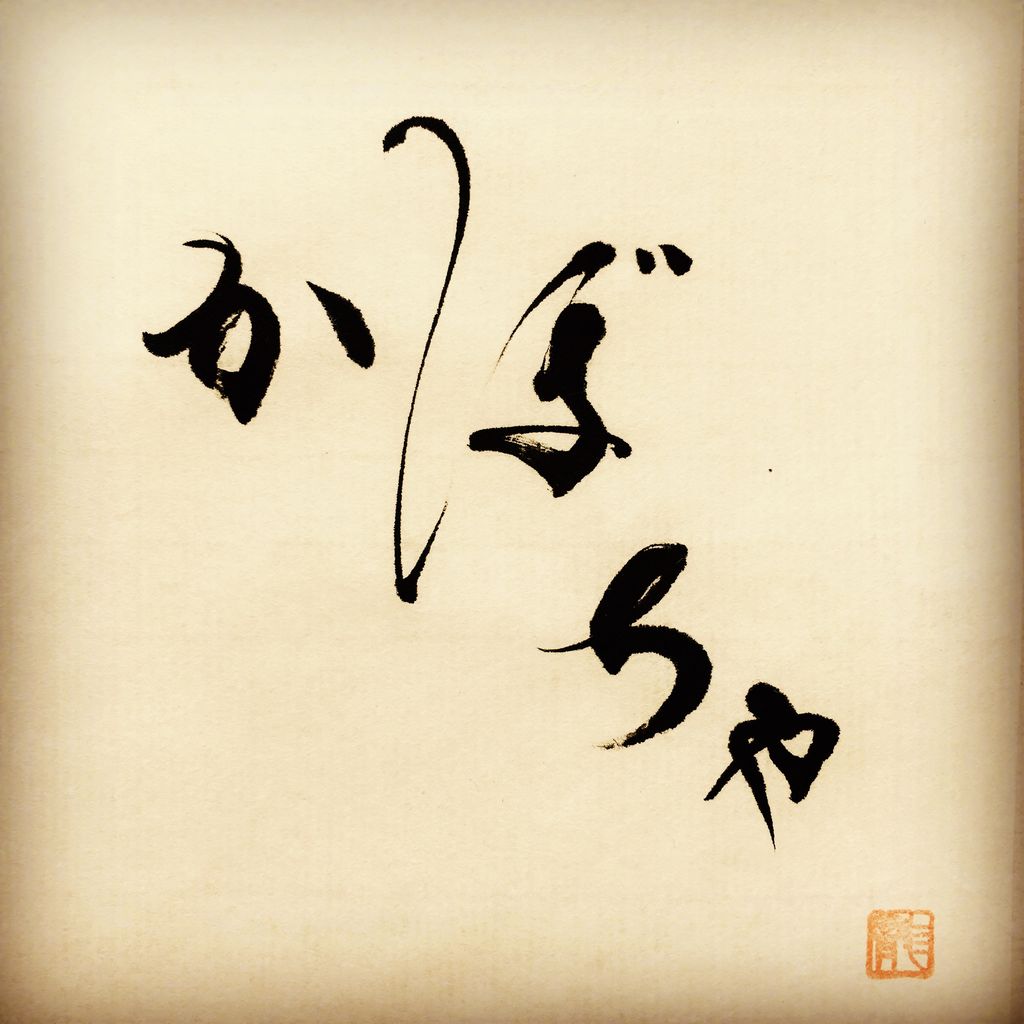 かぼちゃ
龍